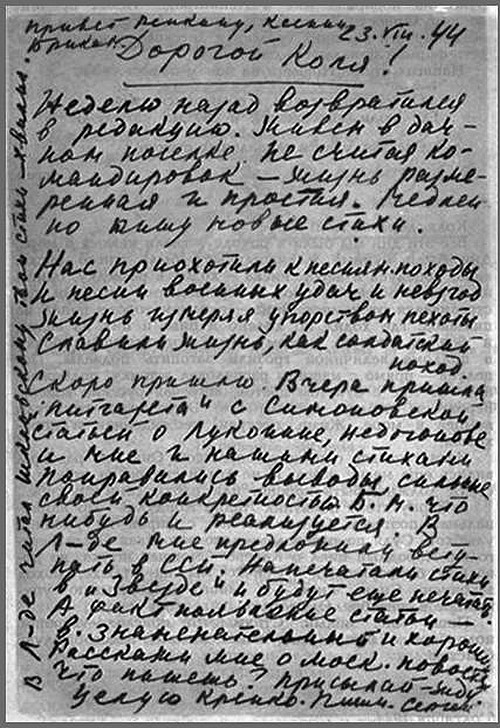 привет Пенкину, Ксении
23.VIII.44
Дорогой Коля!
Неделю назад возвратился
в редакцию. Живем в дач-
ном поселке. Не считая ко-
мандировок – жизнь разме-
ренная и простая. Медлен-
но пишу новые стихи.
Нас приохотили к песням походы
И песни военных удач и невзгод
Жизнь измеряя упорством пехоты
Славили жизнь, как солдатский
поход.
Скоро пришлю. Вчера пришла
"литгазета" с Симоновской
статьей о Луконине, Недогонове
и мне и нашими стихами
Понравились выводы, сильные
своей конкретностью. Б. м. что
нибудь и реализуется. В
Л-де мне предложили всту-
пать в ССП. Напечатали стихи
в "Звезде" и будут еще печатать.
А факт появление статьи –
в. знаменательный и хороший
Расскажи мне о моск. новостях
Что пишешь? присылай – жду
Целую крепко. Пиши. Сергей.
В Л-де читал твои стихи – хвалили.